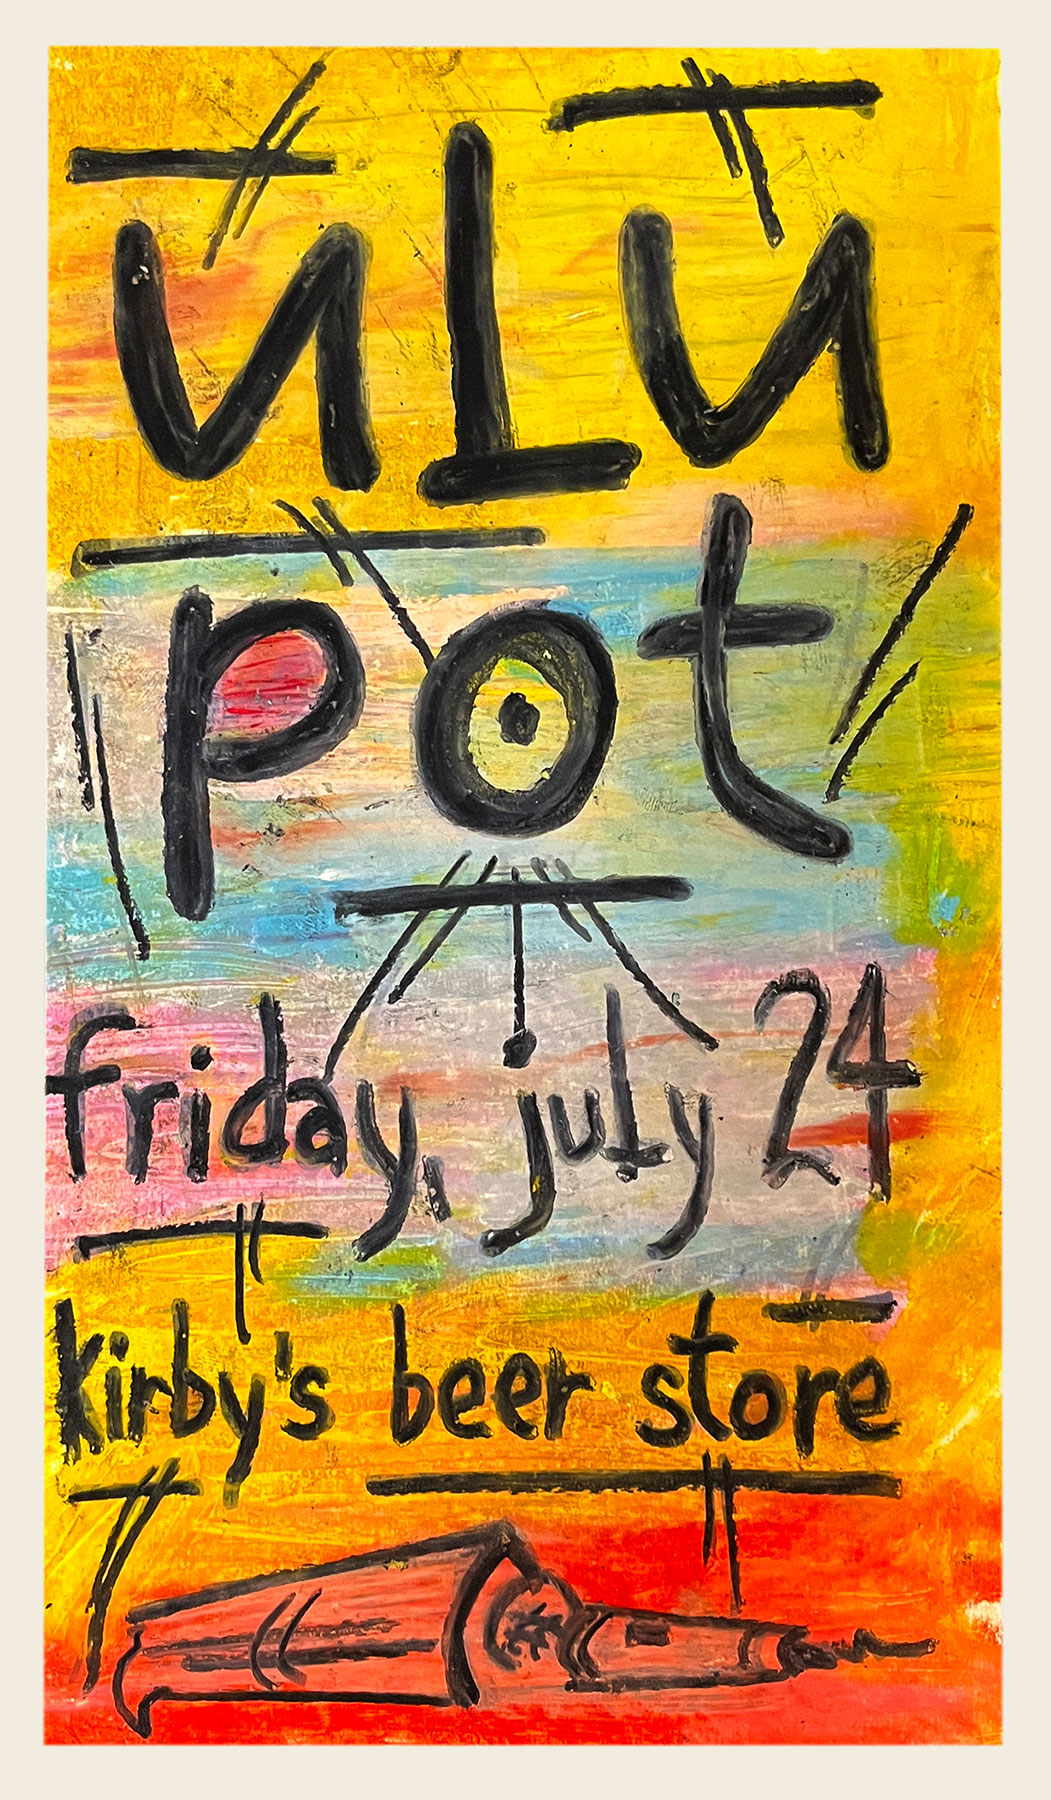 uLu
pot
friday, july 24
kirby's beer store